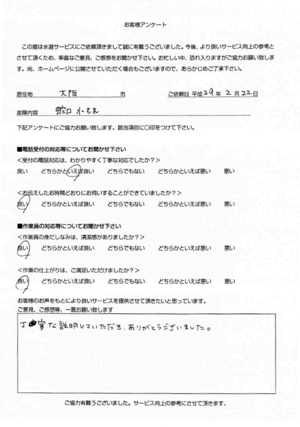 お客様アンケート
この度は水道サービスにご依頼頂きまして誠に有難うございました。今後、より良いサービス向上の参考と
させて頂くため、率直なご意見、ご感想をお聞かせ下さい。お忙しい中、恐れ入りますがご協力お願い致しま
す。尚、ホームページに公開させていただく場合もございますので、あらかじめご了承下さい。
居住地 大阪 市 ご依頼日 平成29年2月22日
故障内容 蛇口水もれ
下記アンケートにご協力お願い致します。該当項目に〇印をつけて下さい。
■電話受付の対応等についてお聞かせ下さい
<受付の電話対応は、わかりやすく丁寧な対応でしたか?>
良い どちらかといえば良い どちらでもない どちらかといえば悪い 悪い
<お伝えしたお時間どおりにお伺いすることができていましたか?>
良い どちらかといえば良い どちらでもない どちらかといえば悪い 悪い
■作業員の対応等についてお聞かせ下さい
<作業員の身だしなみは、清潔感がありましたか?>
良い どちらかといえば良い どちらでもない どちらかといえば悪い 悪い
<作業の仕上がりは、ご満足いただけましたか?>
良い どちらかといえば良い どちらでもない どちらかといえば悪い 悪い
お客様のお声をもとにより良いサービスを提供させて頂きたいと思っています。
ご意見、ご感想等、一言お願い致します
丁寧な説明していただき、ありがとうございました。
ご協力有難うございました。サービス向上の参考にさせて頂きます。